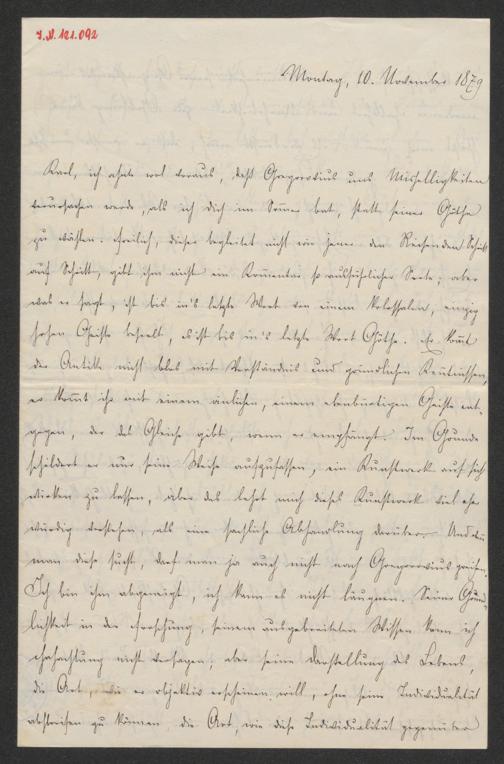 I.N. 121.092
Montag, 10. November 1879
Karl, ich ahnte wol voraus, daß Gregorovius uns Mishelligkeiten
verursachen werde, als ich dich im Sommer bat, statt seiner Göthe
zu wählen. Freilich, dieser begleitet nicht wie jener den Reisenden Schritt
auf Schritt, gibt ihm nicht ein Komentar, so ausführlicher Seite; aber
was er sagt, ist bis in's letzte Wort von einem kolossalen, einzig
hohen Geiste beseelt, es ist bis in's letzte Wort Göthe. Er komt
der Antike nicht blos mit Verständnis und gründlichen Kentnissen,
er kommt ihr mit einem änlichen, einem ebenbürtigen Geiste ent-
gegen, der das Gleiche gibt, wenn er empfängt. Im Grunde
schildert er nur seine Weise aufzufassen, ein Kunstwerk auf sich
wirken zu lassen, aber das lehrt mich dieses Kunstwerk viel ehe
würdig verstehen, als eine sachliche Abhandlung darüber. Und
man diese sucht, darf man ja auch nicht nach Gregorovius greifen.
Ich bin ihm abgeneigt, ich kann es nicht läugnen. Seiner Gründ-
lichkeit in der Forschung, seinem ausgebreiteten Wissen kann ich
Hochachtung nicht versagen; aber seine Darstellung des Lebens,
die Art, wie er objektiv erscheinen will, ohne seine Individualität
abstreifen zu können, die Art, wie diese Individualität gegenüber